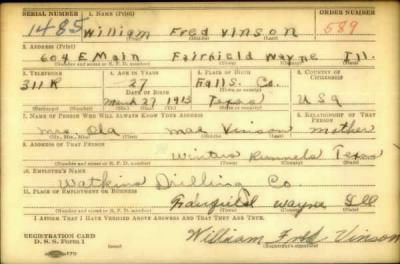 SERIAL NUMBER 1. NAME (Print) ORDER NUMBER
1485 William Fred Vinson 589
(First) (Middle) (Last)
2. ADDRESS (Print)
604 E Main Fairfield Wayne Ill.
(Number and street or R. F. D. number) (Town) (County) (State)
3. TELEPHONE 4. AGE IN YEARS 5. PLACE OF BIRTH 6. COUNTRY OF CITIZENSHIP
311R 27 Falls Co.
DATE OF BIRTH
March 27 1913 Texas USA
(Exchange) (Number) (Mo.) (Day) (Yr.) (State or country)
7. NAME OF PERSON WHO WILL ALWAYS KNOW YOUR ADDRESS 8. RELATIONSHIP OF THAT PERSON
Mrs Ola Mae Vinson mother
(Mr., Mrs., Miss) (First) (Middle) (Last)
9. ADDRESS OF THAT PERSON
Winters Runnels Texas
(Number and street or R. F. D. number) (Town) (County) (State)
10. EMPLOYER'S NAME
Watkins Drilling Co.
11. PLACE OF EMPLOYMENT OR BUSINESS
Fairfield Wayne Ill
(Number and street or R. F. D. number) (Town) (County) (State)
I AFFIRM THAT I HAVE VERIFIED ABOVE ANSWERS AND THAT THEY ARE TRUE.
REGISTRATION CARD
D. S. S. Form 1
William Fred Vinson
(Registrant's signature)